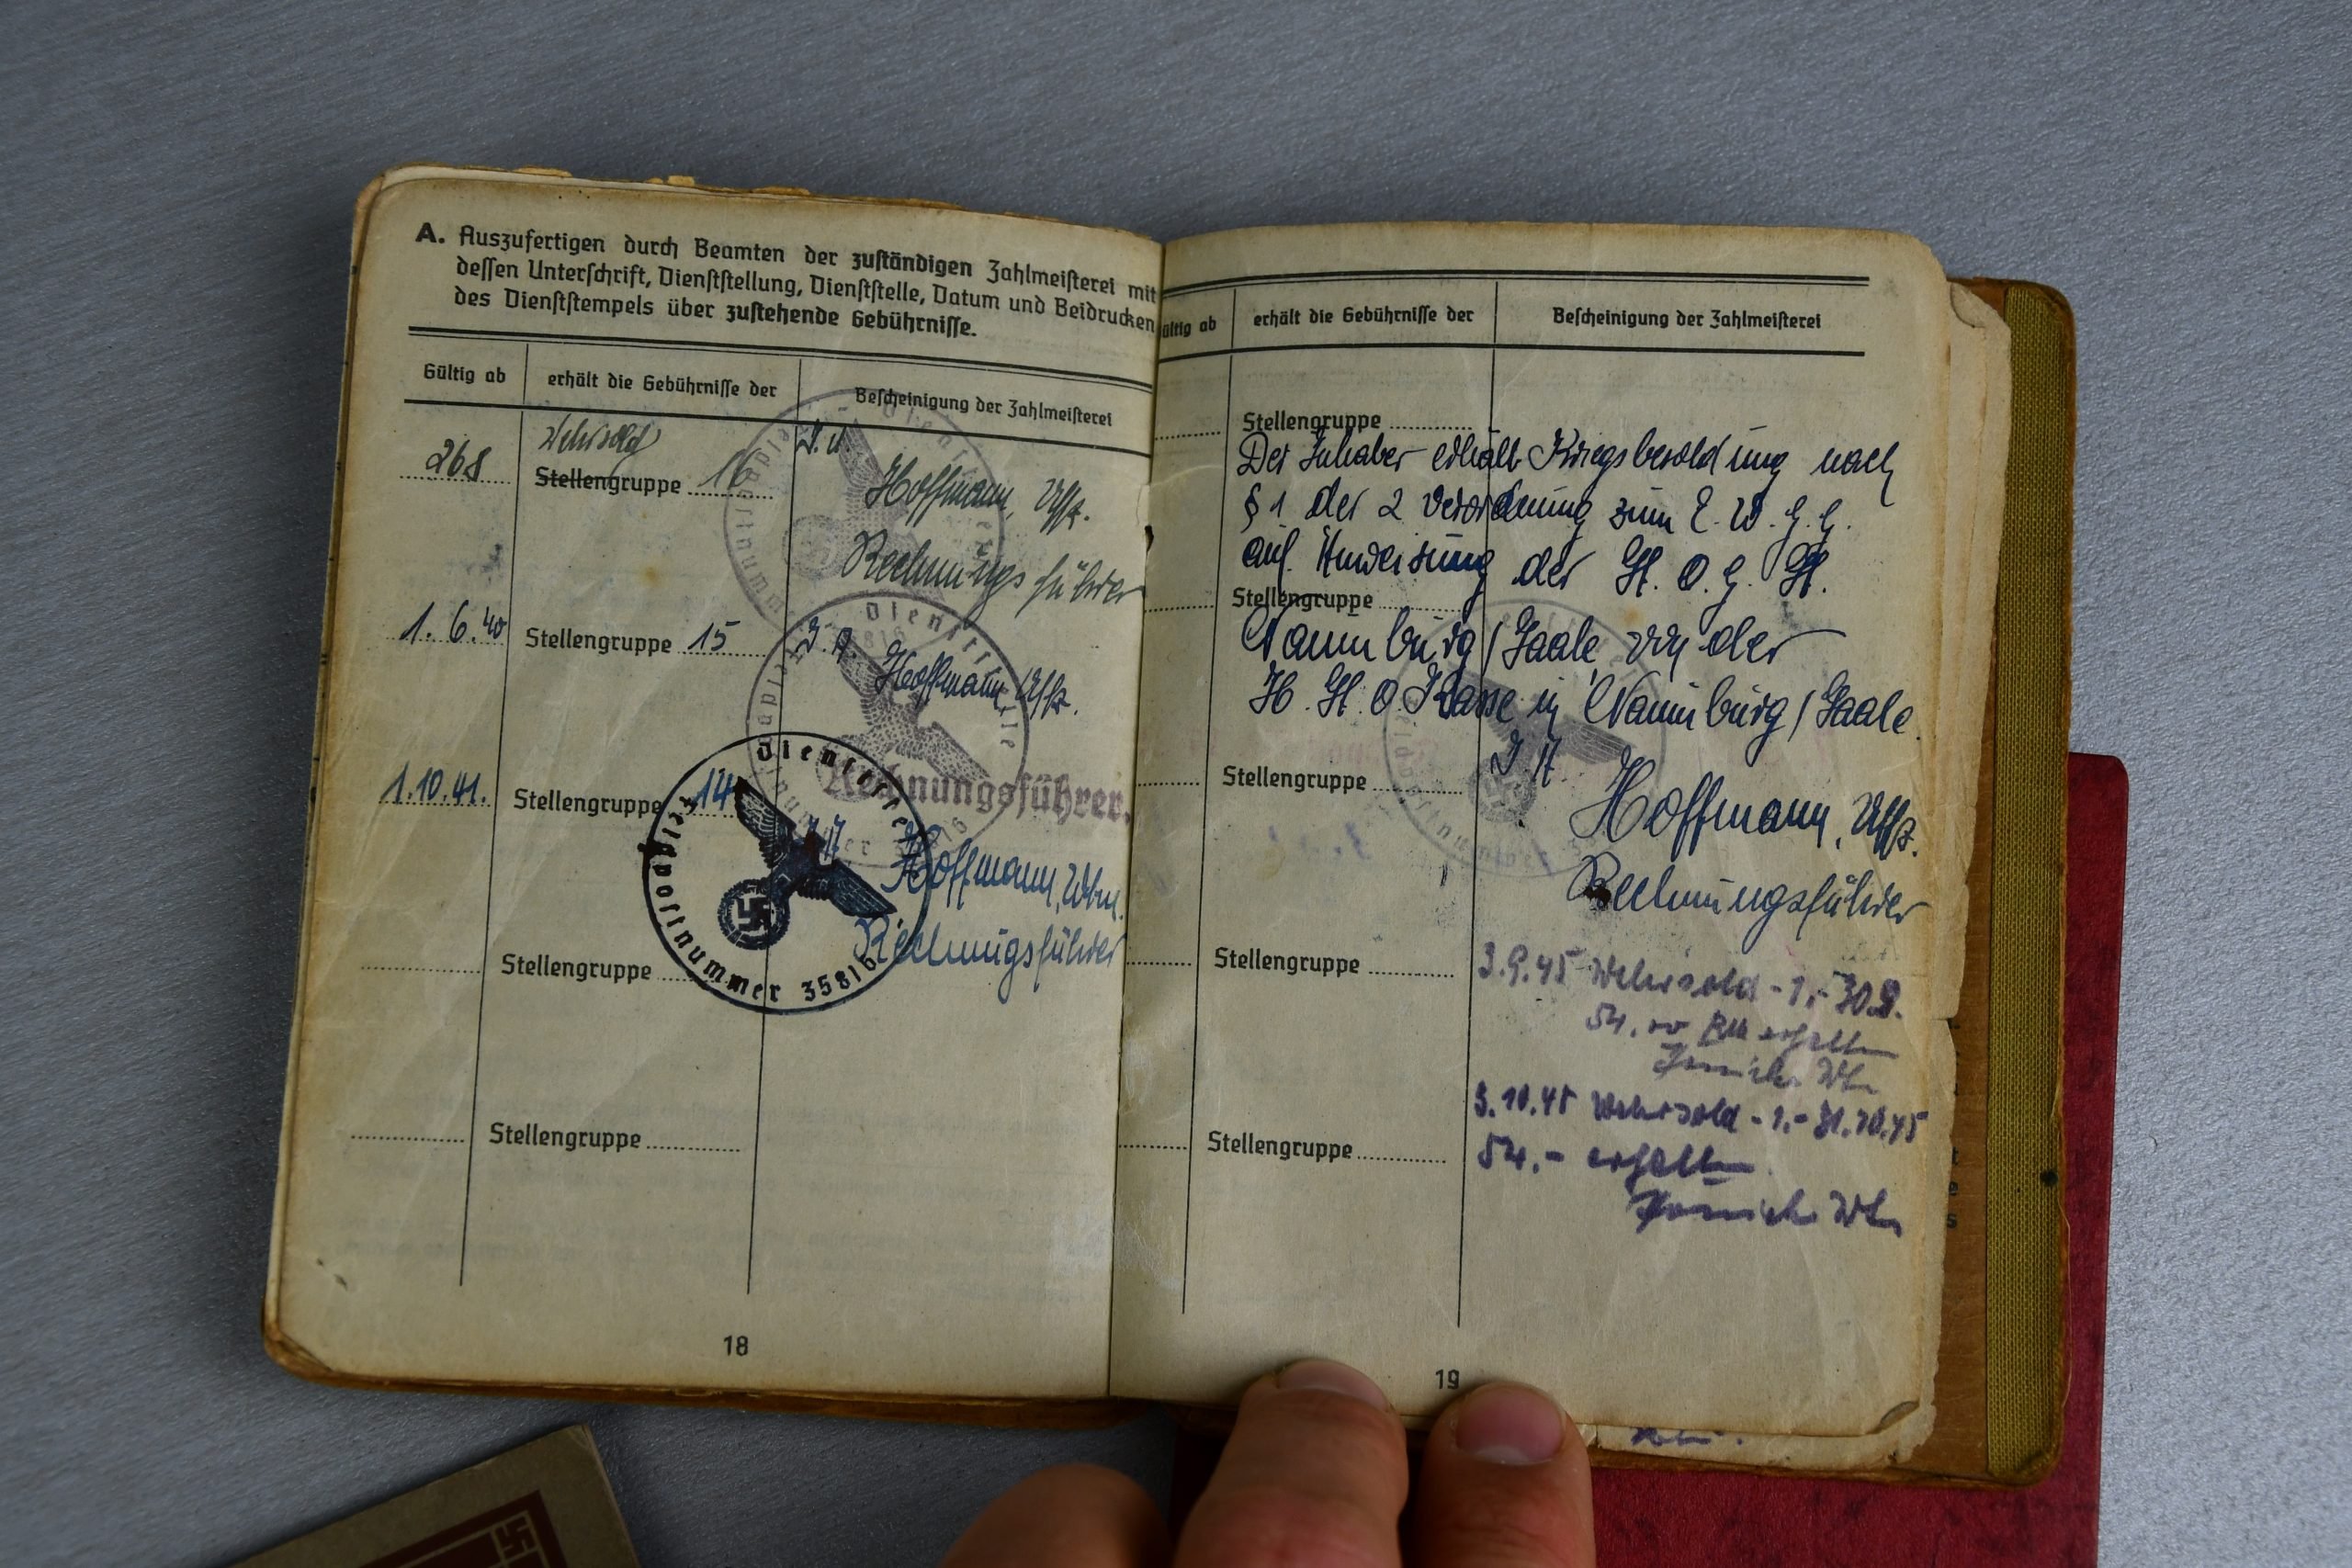 A. Auszufertigen durch Beamten der zuständigen Zahlmeisterei mit
dessen Unterschrift, Dienststellung, Dienststelle, Datum und Beidrucken
des Dienststempels über zustehende Gebührnisse.
Gültig ab erhält die Gebührnisse der Bescheinigung der Zahlmeisterei
Wehrsold
268 Stellengruppe 16
Hoffmann, Uffz.
Rechnungsführer
1.6.40 Stellengruppe 15
Hoffmann, Uffz.
Rechnungsführer.
1.10.41. Stellengruppe 14
Hoffmann, Wbm.
Rechnungsführer
Dienststelle
Feldpostnummer 35816
Stellengruppe
Stellengruppe
18
ültig ab erhält die Gebührnisse der Bescheinigung der Zahlmeisterei
Stellengruppe
Der Inhaber erhält Kriegsbesoldung nach
§ 1 der 2 Verordnung zum E. W. G. G.
auf Anweisung der St. O. G. St.
Stellengruppe
Naumburg/Saale von der
H. St. O. Kasse in Naumburg/Saale.
Stellengruppe
Hoffmann, Uffz.
Rechnungsführer
Stellengruppe
3.9.45 Wehrsold - 1.- 30.9.
54.00 RM erhalten
3.10.45 Wehrsold - 1.- 31.10.45
Stellengruppe
54.- erhalten
19